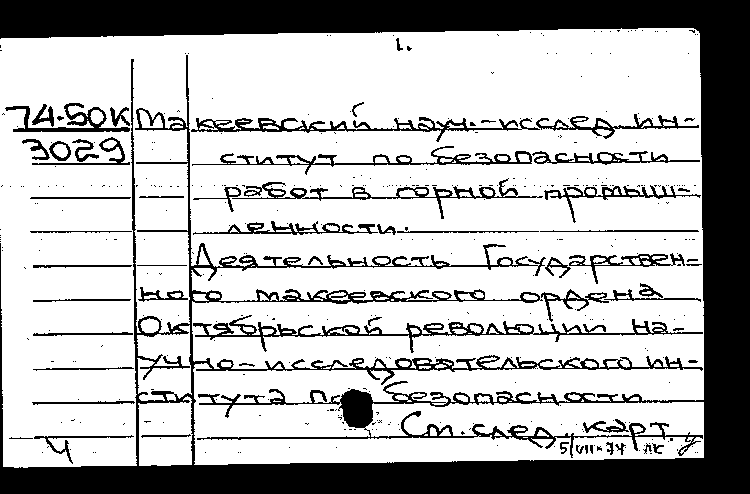 1.
74-50К Макеевский науч.-исслед ин-
3029 ститут по безопасности
работ в горной промыш-
ленности.
Деятельность Государствен-
ного макеевского ордена
Октябрьской революции на-
учно-исследовательского ин-
ститута по безопасности
См. след. карт.
Ч 5/VII-74 ЛК